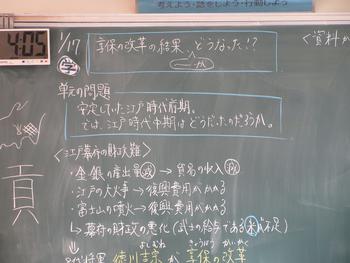 考えよう・話をしよう・行動しよう
4:05
1/17
享保の改革の結果、どうなった!?
学
単元の問題
安定していた江戸時代前期。
では、江戸時代中期はどうだったのだろうか。
<資料
<江戸幕府の財政難>
・金・銀の産出量減→貿易の収入
・江戸の大火事→復興費用がかかる
・富士山の噴火→復興費用がかかる
↳幕府の財政の悪化(武士の給与である米が不足)
貢
よしむね きょうほう かいかく
8代将軍 徳川吉宗が享保の改革